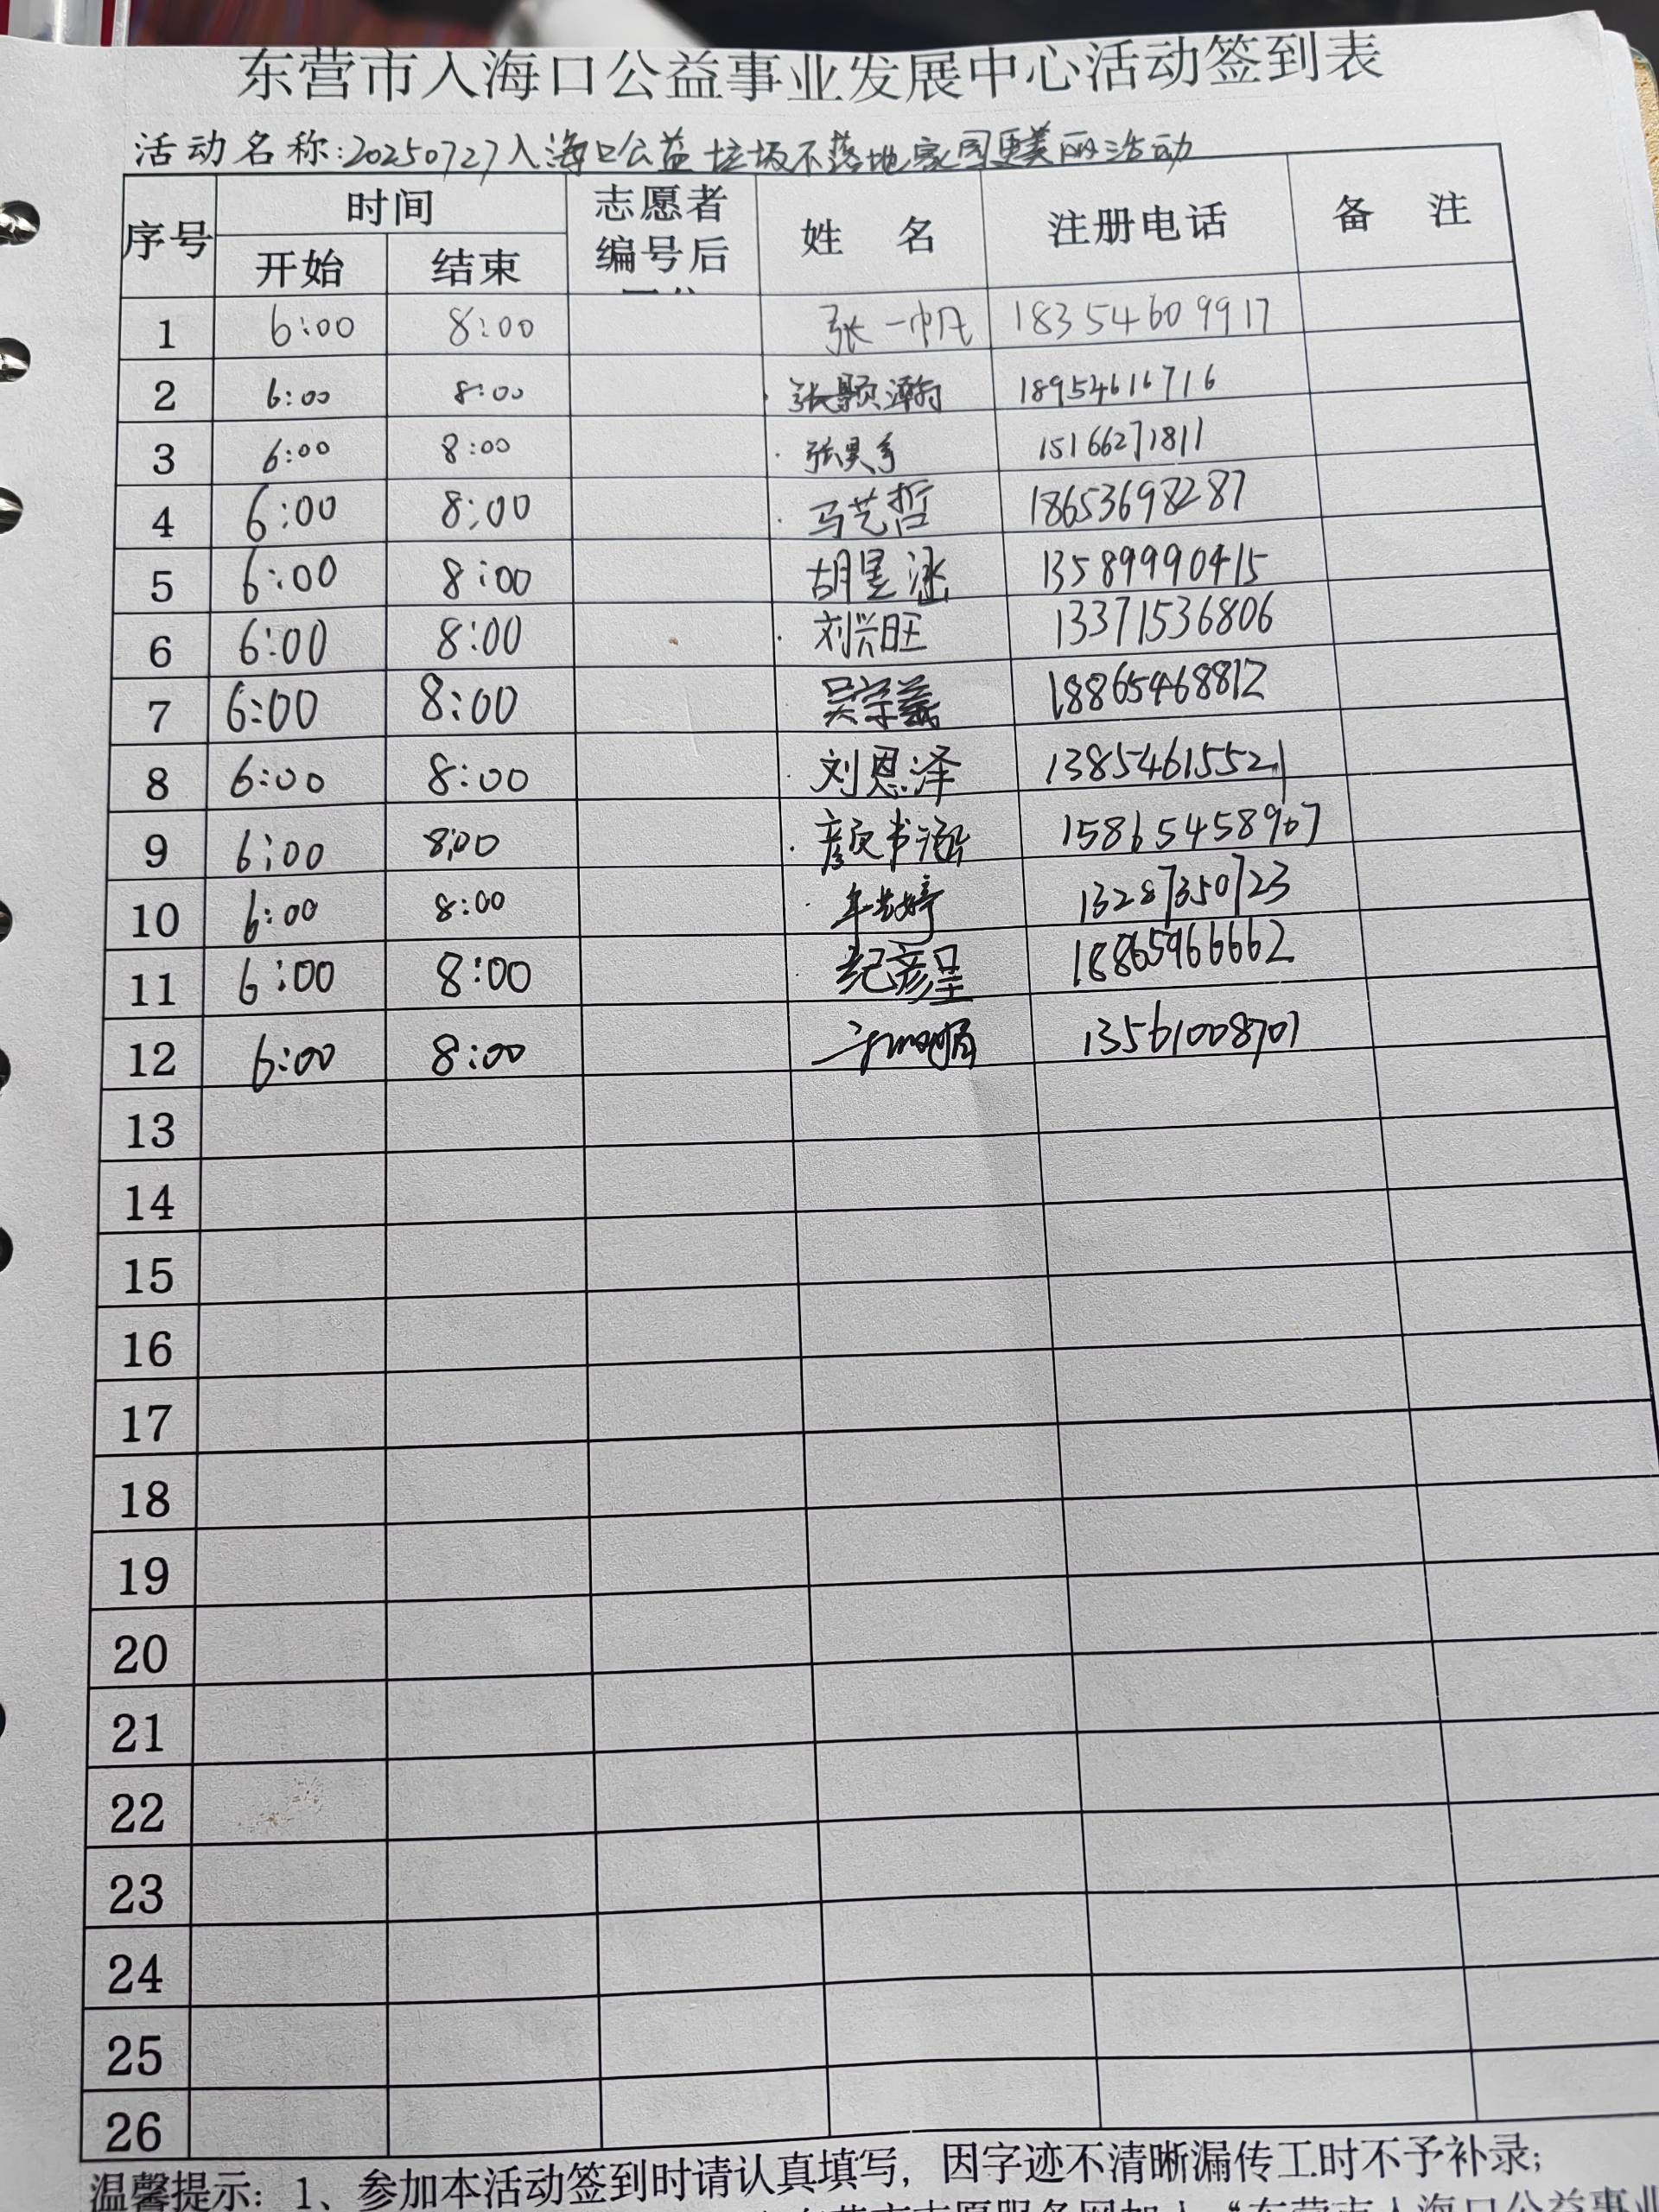 东营市入海口公益事业发展中心活动签到表
活动名称:20250727入海口公益垃圾不落地家园更美丽活动
序号 时间 志愿者编号后 姓名 注册电话 备注
开始 结束
1 6:00 8:00 张一帆 18354609917
2 6:00 8:00 张颢瀚 18954616716
3 6:00 8:00 张昊 15166271811
4 6:00 8:00 马艺哲 18653698287
5 6:00 8:00 胡星涵 13589990415
6 6:00 8:00 刘兴旺 13371536806
7 6:00 8:00 吴宗羲 18865468812
8 6:00 8:00 刘恩泽 13854615521
9 6:00 8:00 颜书涵 15865458907
10 6:00 8:00 婷 13287350723
11 6:00 8:00 纪彦呈 18865966662
12 6:00 8:00 13561008701
13
14
15
16
17
18
19
20
21
22
23
24
25
26
温馨提示：1、参加本活动签到时请认真填写，因字迹不清晰漏传工时不予补录；